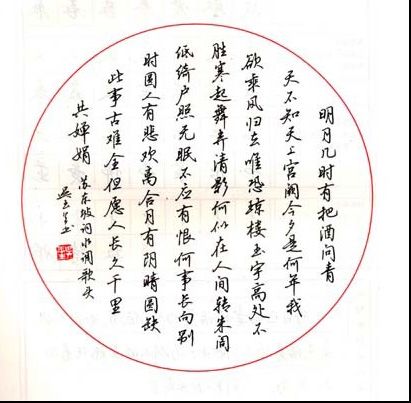 明月几时有把酒问青
天不知天上宫阙今夕是何年我
欲乘风归去唯恐琼楼玉宇高处不
胜寒起舞弄清影何似在人间转朱阁
低绮户照无眠不应有恨何事长向别
时圆人有悲欢离合月有阴晴圆缺
此事古难全但愿人长久千里
共婵娟 苏东坡词水调歌头
吴玉生书